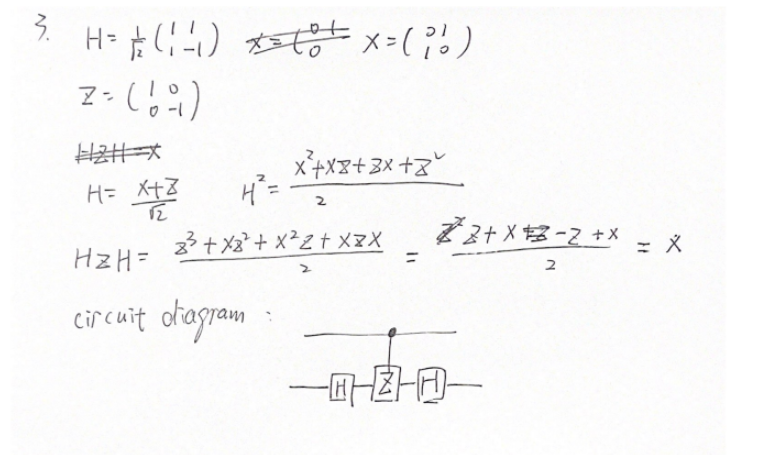 3. H = 1/√2 (1 1 1 -1) X = (0 1 1 0)
Z = (1 0 0 -1)
HZH = X
H = X+Z/√2 H² = X²+XZ+ZX+Z²/2
HZH = Z³+XZ²+X²Z+XZX/2 = Z+X-Z+X/2 = X
circuit diagram :
H Z H